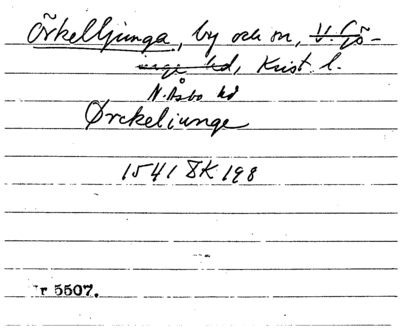 Örkelljunga, by och sn, V. Gö-
inge hd, Krist. l.
N. Åsbo hd
Ørckeliunge
1541 SK 198
Nr 5507.